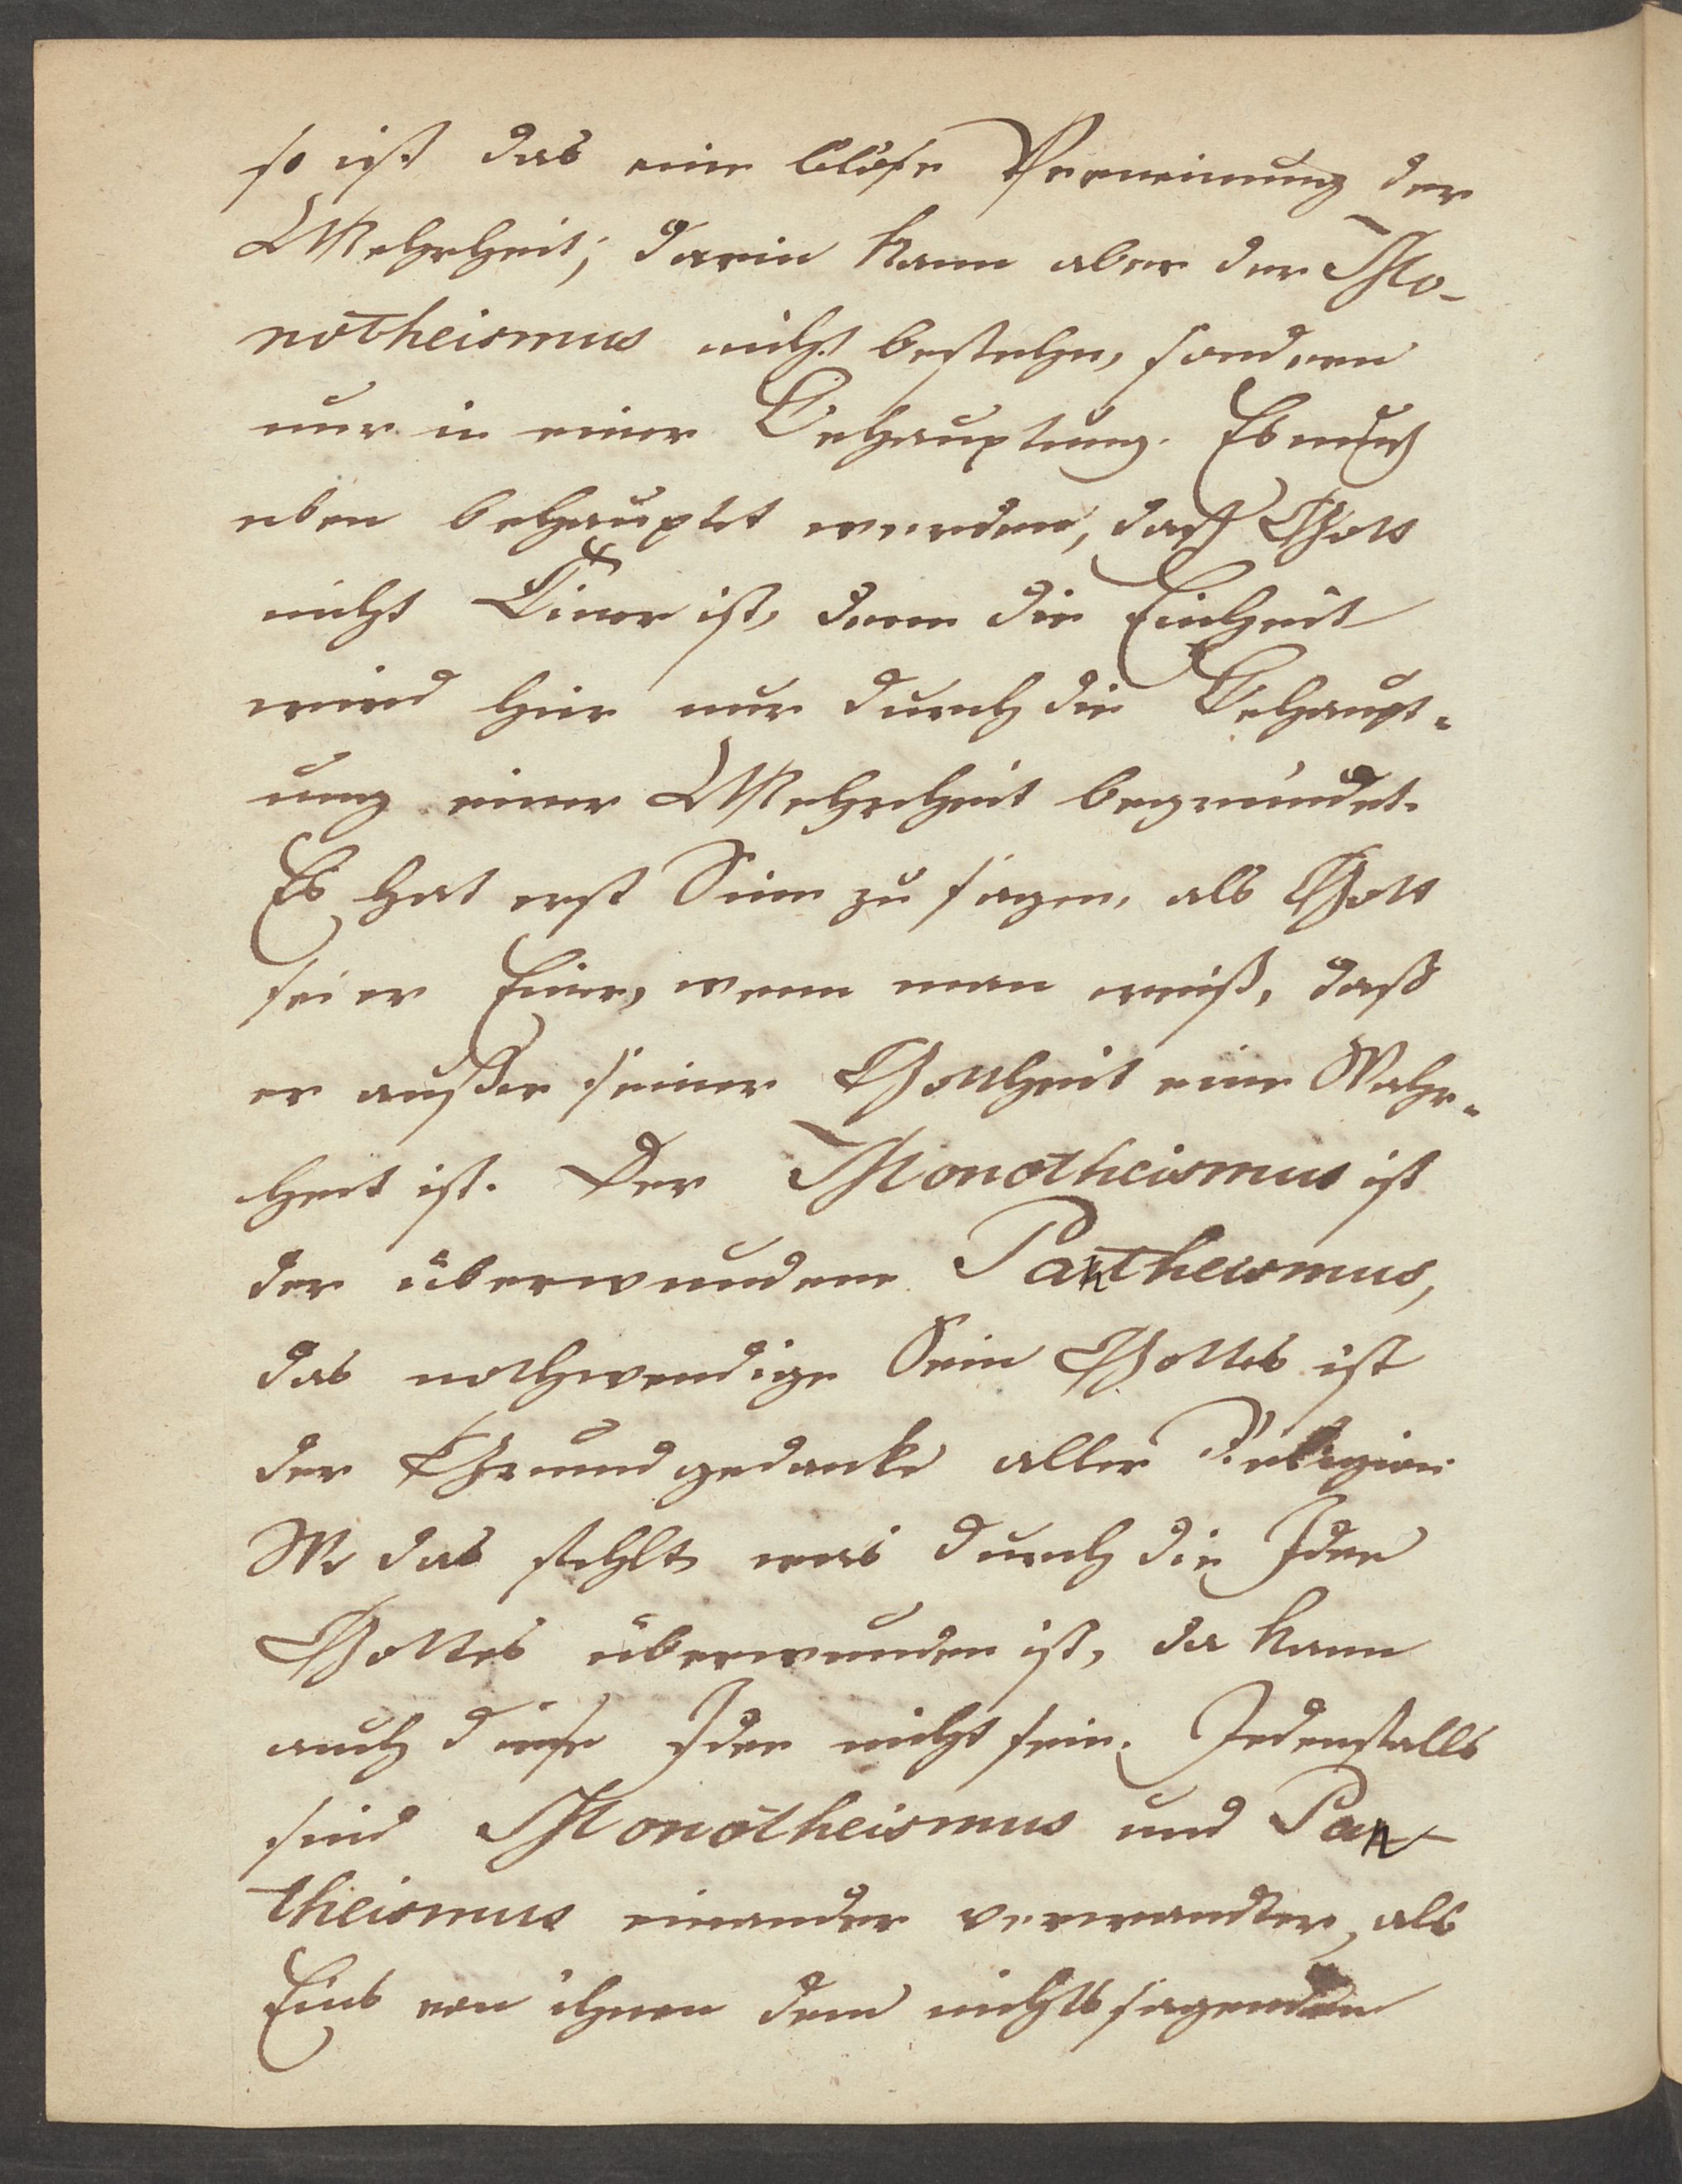 so ist das eine bloße Verneinung der
Mehrheit; darin kann aber der Mo-
notheismus nicht bestehn, sondern
nur in einer Behauptung. Es muß
eben behauptet werden, daß Gott
nicht Einer ist, denn die Einheit
wird hier nur durch die Behaupt-
ung einer Mehrheit begründet.
Es hat erst Sinn zu sagen, als Gott
sei er Einer, wenn man weiß, daß
er außer seiner Gottheit eine Mehr-
heit ist. Der Monotheismus ist
der überwundene Pantheismus,
das nothwendige Sein Gottes ist
der Grundgedanke aller Religion
Wo das fehlt, was durch die Idee
Gottes überwunden ist, da kann
auch diese Idee nicht sein. Jedenfalls
sind Monotheismus und Pan-
theismus einander verwandter, als
Eins von ihnen dem nichtssagenden